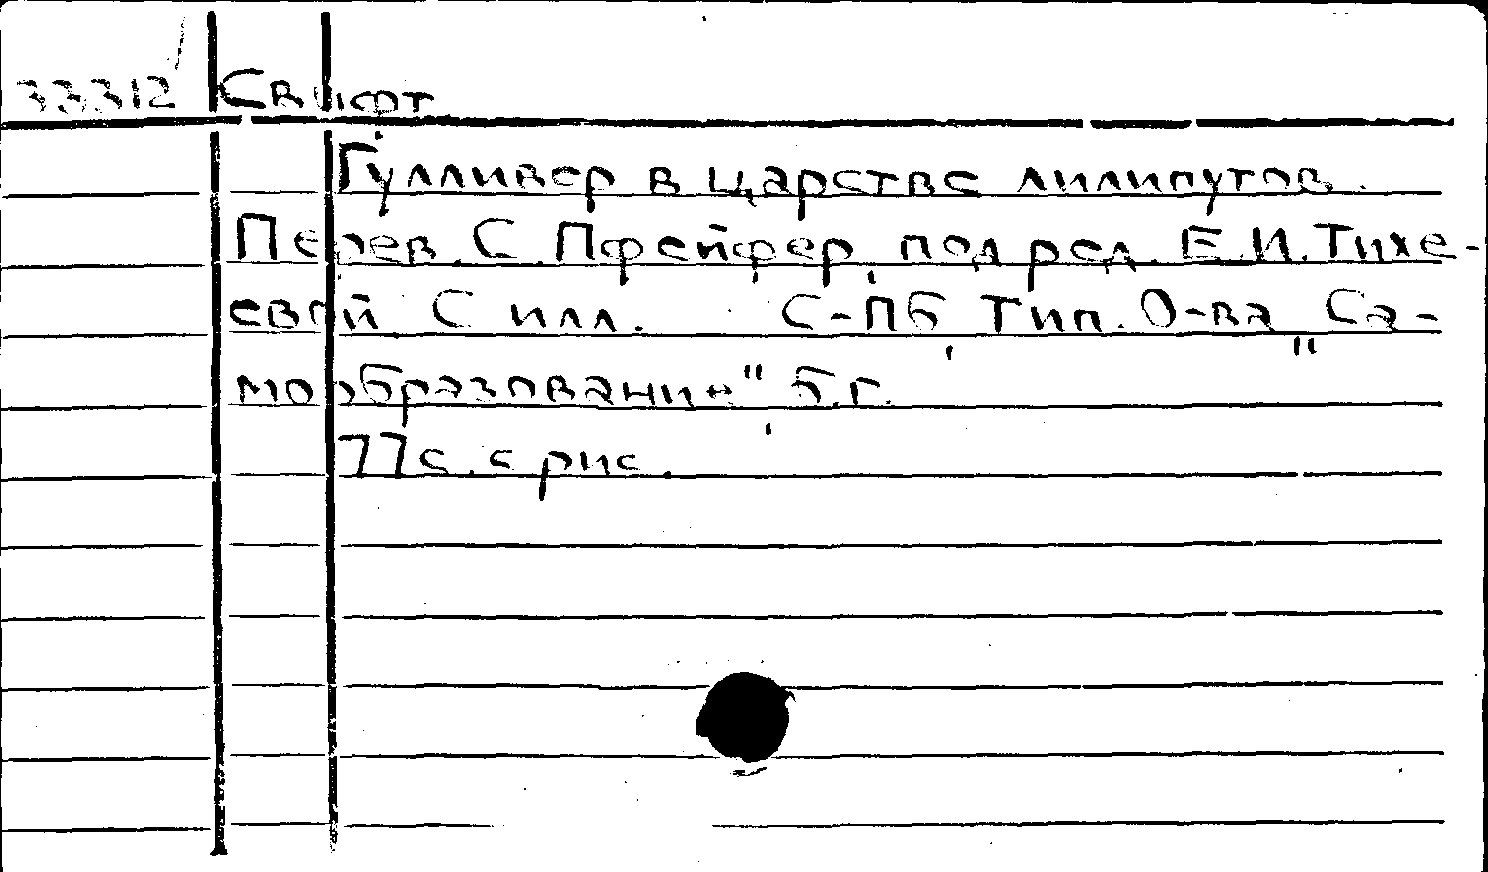 33312 Свифт
Гулливер в царстве лилипутов.
Перев. С. Пфейфер, под ред. Е.И. Тихе-
евой. С илл. С-Пб, Тип. О-ва „Са-
мообразование" б.г.
77с. с рис.